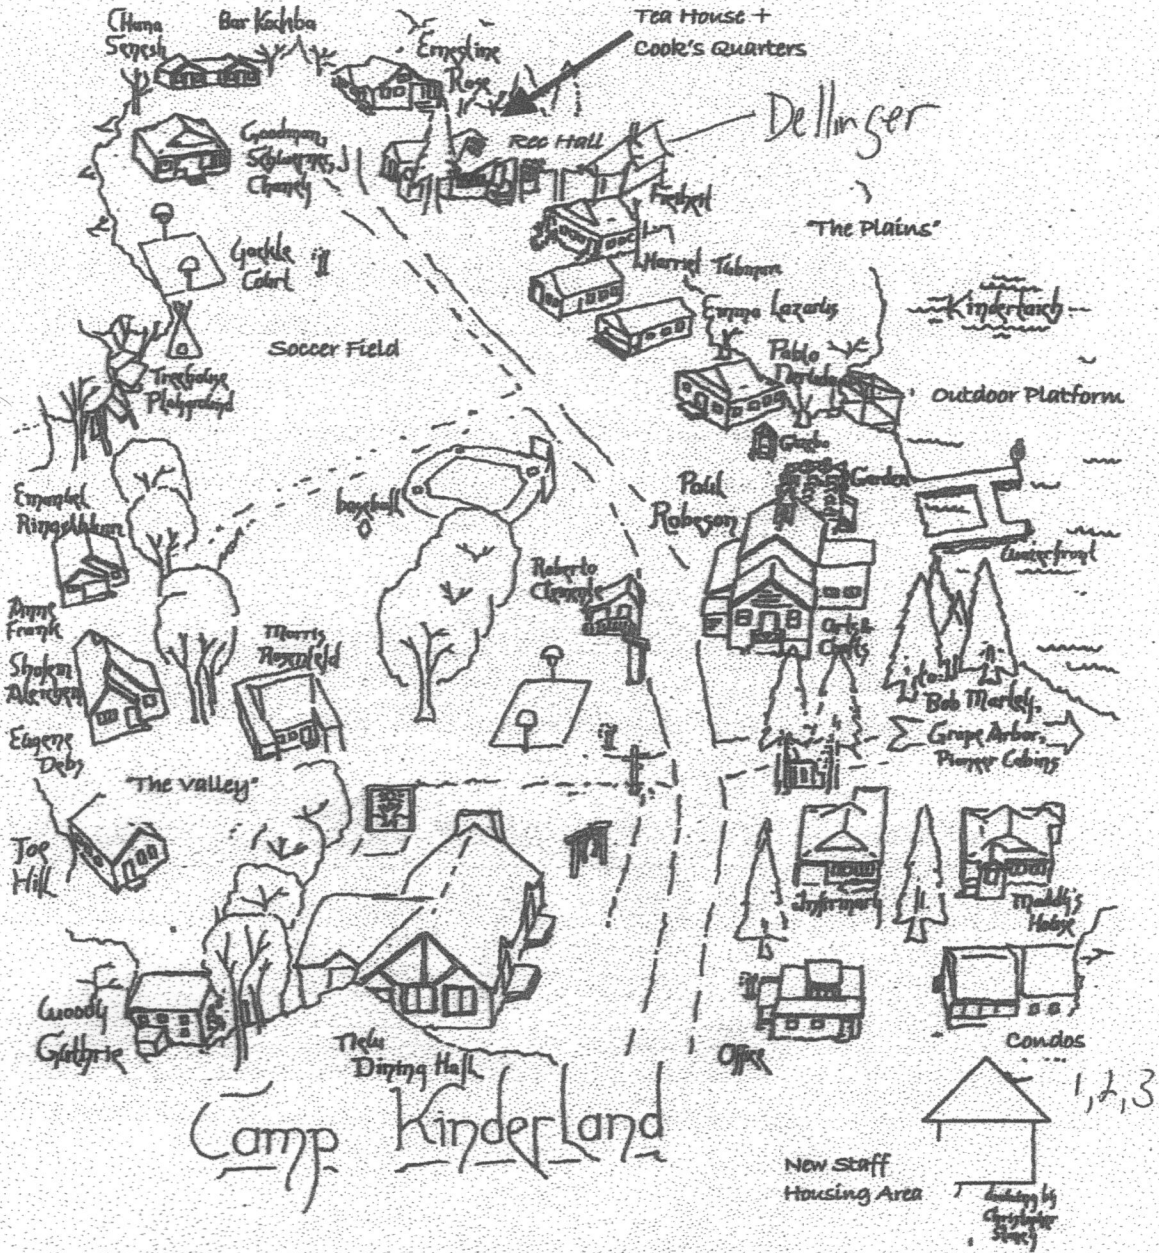 Chana
Senesh
Bar Kochba
Ernestine
Rose
Tea House +
Cook's Quarters
Dellinger
Goodman,
Schwerner,
Chaney
Rec Hall
"The Plains"
Harriet Tubman
Court
Emma Lazarus
Kindertaich
Soccer Field
Pablo
Treehouse
Playground
Outdoor Platform
Gazebo
Garden
Emanuel
Ringelblum
baseball
Paul
Robeson
Waterfront
Roberto
Clemente
Anne
Frank
Morris
Rosenfeld
Arts &
Crafts
Sholem
Aleichem
Bob Marley,
Grape Arbor,
Pioneer Cabins
Eugene
Debs
"The Valley"
Joe
Hill
Infirmary
Maddy's
House
Woody
Guthrie
New
Dining Hall
Office
Condos
1,2,3
Camp Kinderland
New Staff
Housing Area
drawing by
Christopher